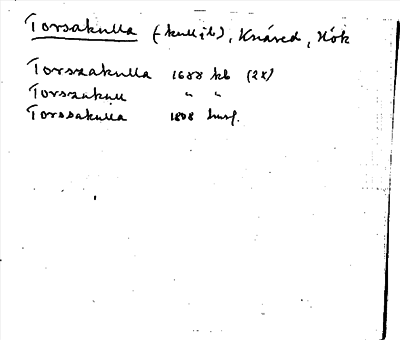 Torsakulla (-kullib), Knäred, Hök
Torszakulla 1688 kb (2x)
Torszakull " "
Torssakulla 1808 husf.